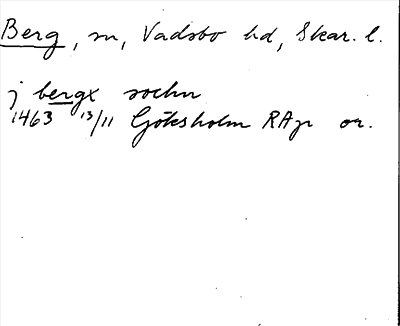 Berg, sn, Vadsbo hd, Skar. l.
j bergx sochn
1463 13/11 Göksholm RAp or.